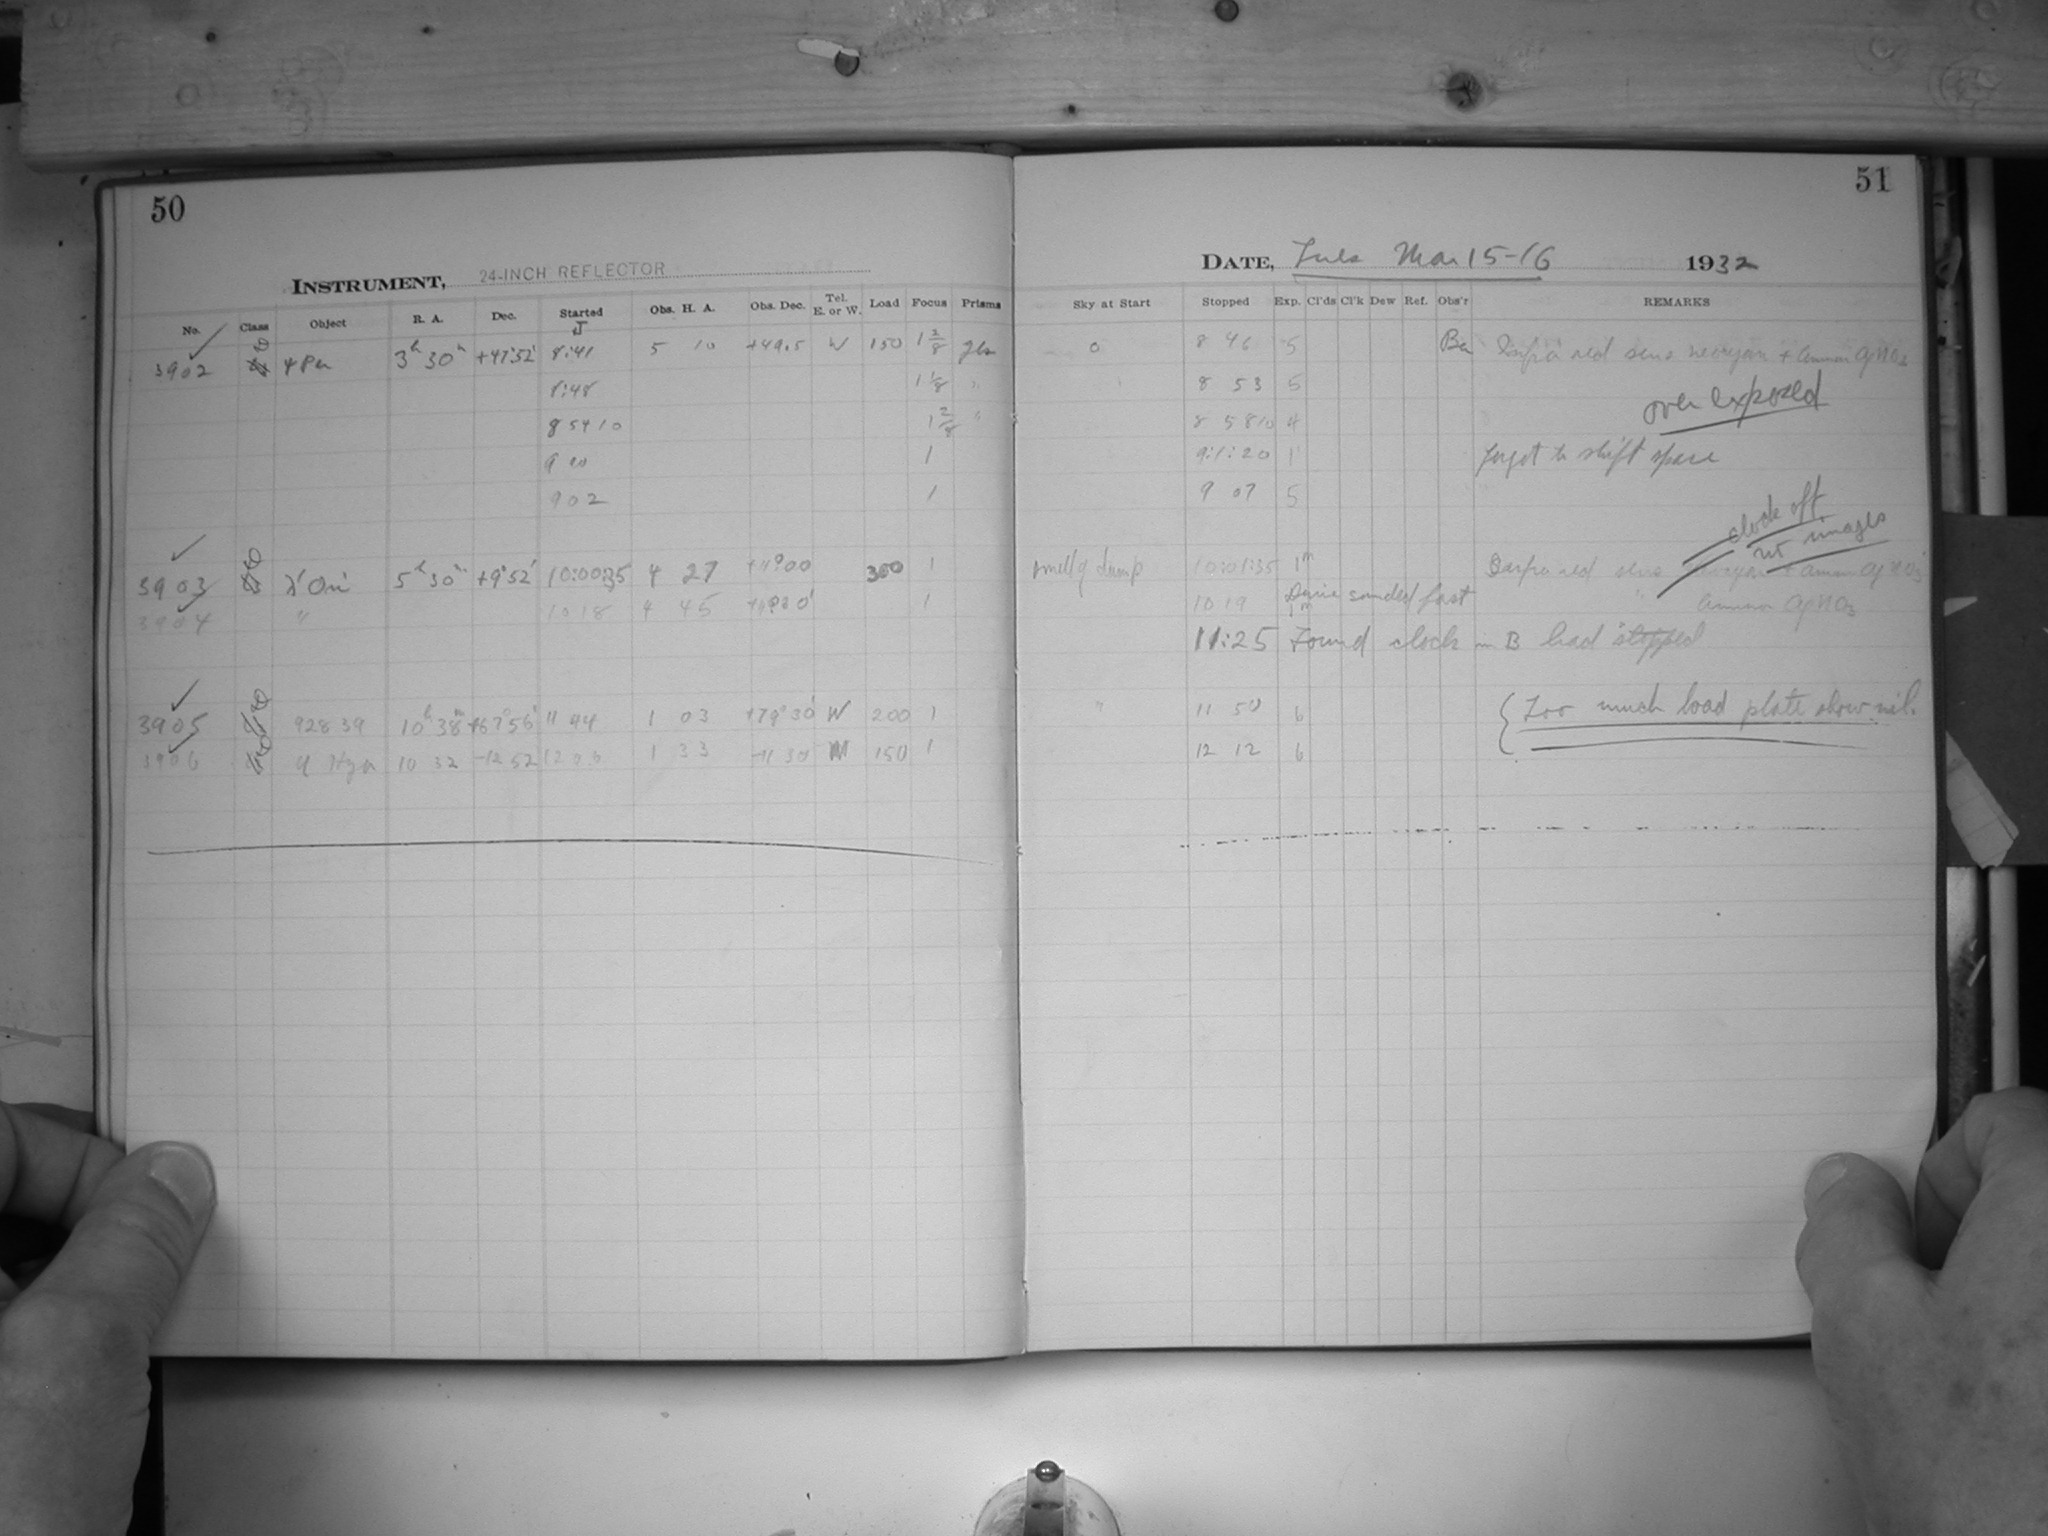 50
INSTRUMENT, 24-INCH REFLECTOR
No. Class Object R. A. Dec. Started Obs. H. A. Obs. Dec. Tel. E. or W. Load Focus Prisms
J
3902 4 Per 3h 30m +47°52' 8:41 5 10 +49.5 W 150 1 2/8 yes
8:48 1 1/8 "
8 54 10 1 2/8 "
9 00 1
9 02 1
3903 λ' Ori 5h 30m +9°52' 10:00:35 4 27 300 1
3904 " 10 18 4 45 1
3905 92839 10h 38m +67°56' 11 44 1 03 +79°30' W 200 1
3906 U Hya 10 32 -12 52 12 06 1 33 -11 30 150 1
51
DATE, Tues Mar 15-16 1932
Sky at Start Stopped Exp. Cl'ds Cl'k Dew Ref. Obs'r REMARKS
0 8 46 5 Infra red sens + Ammon AgNO3
8 53 5 over exposed
8 58 10 4
9:1:20 1 Forgot to shift space
9 07 5
clock off
no images
smelly damp 10:01:35 1m Infra red sens + Ammon AgNO3
10 19 1m sounded fast " Ammon AgNO3
11:25 Found clock in B had stopped
" 11 50 6 Too much load plate show nil.
12 12 6